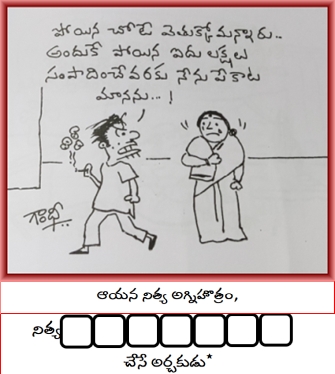 పోయిన చోటే వెతుక్కోమన్నారు..
అందుకే పోయిన ఐదు లక్షలు
సంపాదించేవరకు నేను పేకాట
మానను...!
గాంధీ..
ఆయన నిత్య అగ్నిహోత్రం,
నిత్య
చేసే అర్చకుడు*